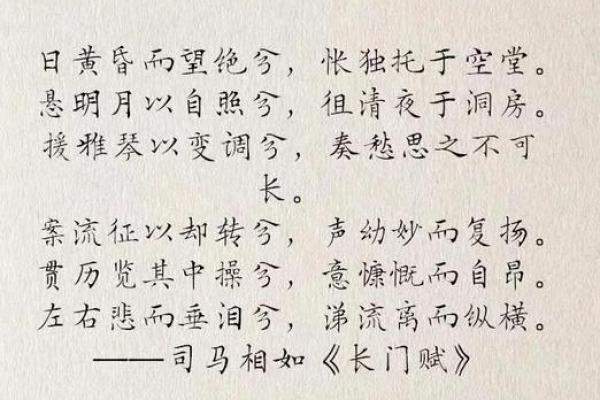 日黄昏而望绝兮，怅独托于空堂。
悬明月以自照兮，徂清夜于洞房。
援雅琴以变调兮，奏愁思之不可
长。
案流征以却转兮，声幼妙而复扬。
贯历览其中操兮，意慷慨而自昂。
左右悲而垂泪兮，涕流离而纵横。
——司马相如《长门赋》